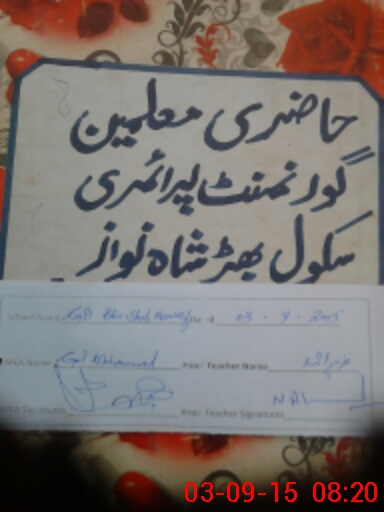 حاضری معلمین
گورنمنٹ پرائمری
سکول بھڑ شاہ نواز
School Name: GPS Bhir Shah Nawaz Date 03-9-2015
MEA Name: Gul Mohammad Head Teacher Name
MEA Signatures Head Teacher Signatures NAL
03-09-15 08:20